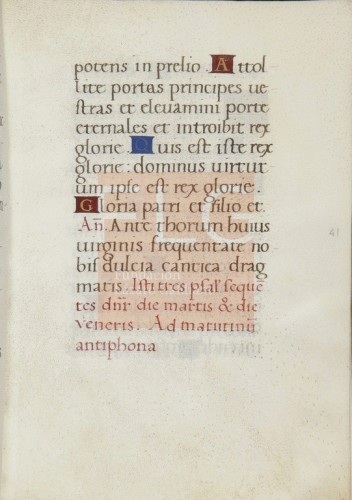 potens in prelio. Attol
lite portas principes ue
stras et eleuamini porte
eternales et introibit rex
glorie. Quis est iste rex
glorie: dominus uirtut
um ipse est rex glorie.
Gloria patri et filio et.
An. Ante thorum huius
uirginis frequentate no
bis dulcia cantica drag
matis. Isti tres psal. seque
tes dnr die martis & die
veneris. Ad matutinū
antiphona
41